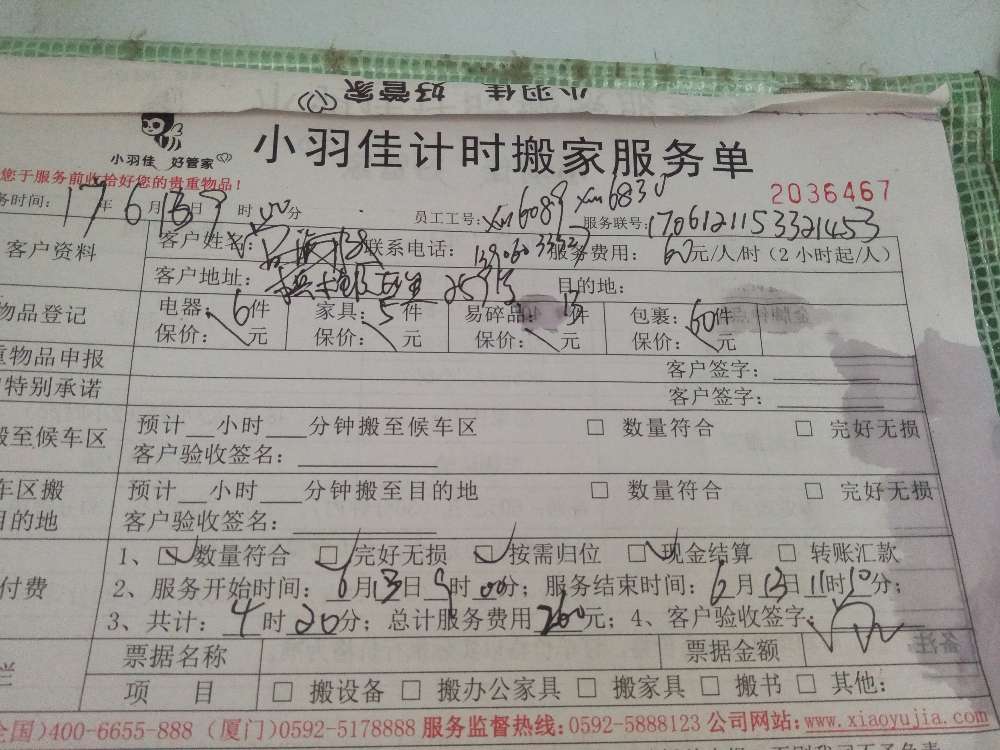 小羽佳 好管家
小羽佳 好管家
小羽佳计时搬家服务单
您于服务前收拾好您的贵重物品!
2036467
务时间: 17年6月13日9时00分 员工工号: xm6089 xm6830 服务联号: 1706121153321453
客户资料 客户姓名: 联系电话: 服务费用: 60元/人/时(2小时起/人)
客户地址: 目的地:
物品登记 电器: 6件 家具: 5件 易碎品: 13件 包裹: 60件
保价: 元 保价: 元 保价: 元 保价: 元
重物品申报 客户签字:
特别承诺 客户签字:
搬至候车区 预计 小时 分钟搬至候车区 □ 数量符合 □ 完好无损
客户验收签名:
车区搬 预计 小时 分钟搬至目的地 □ 数量符合 □ 完好无损
目的地 客户验收签名:
1、☑数量符合 ☑完好无损 ☑按需归位 ☑现金结算 □ 转账汇款
付费 2、服务开始时间: 6月13日9时00分; 服务结束时间: 6月13日11时10分;
3、共计: 4时20分; 总计服务费用260元; 4、客户验收签字:
票据名称 票据金额
栏 项 目 □ 搬设备 □ 搬办公家具 □ 搬家具 □ 搬书 □ 其他:
全国)400-6655-888 (厦门)0592-5178888 服务监督热线:0592-5888123 公司网站:www.xiaoyujia.com